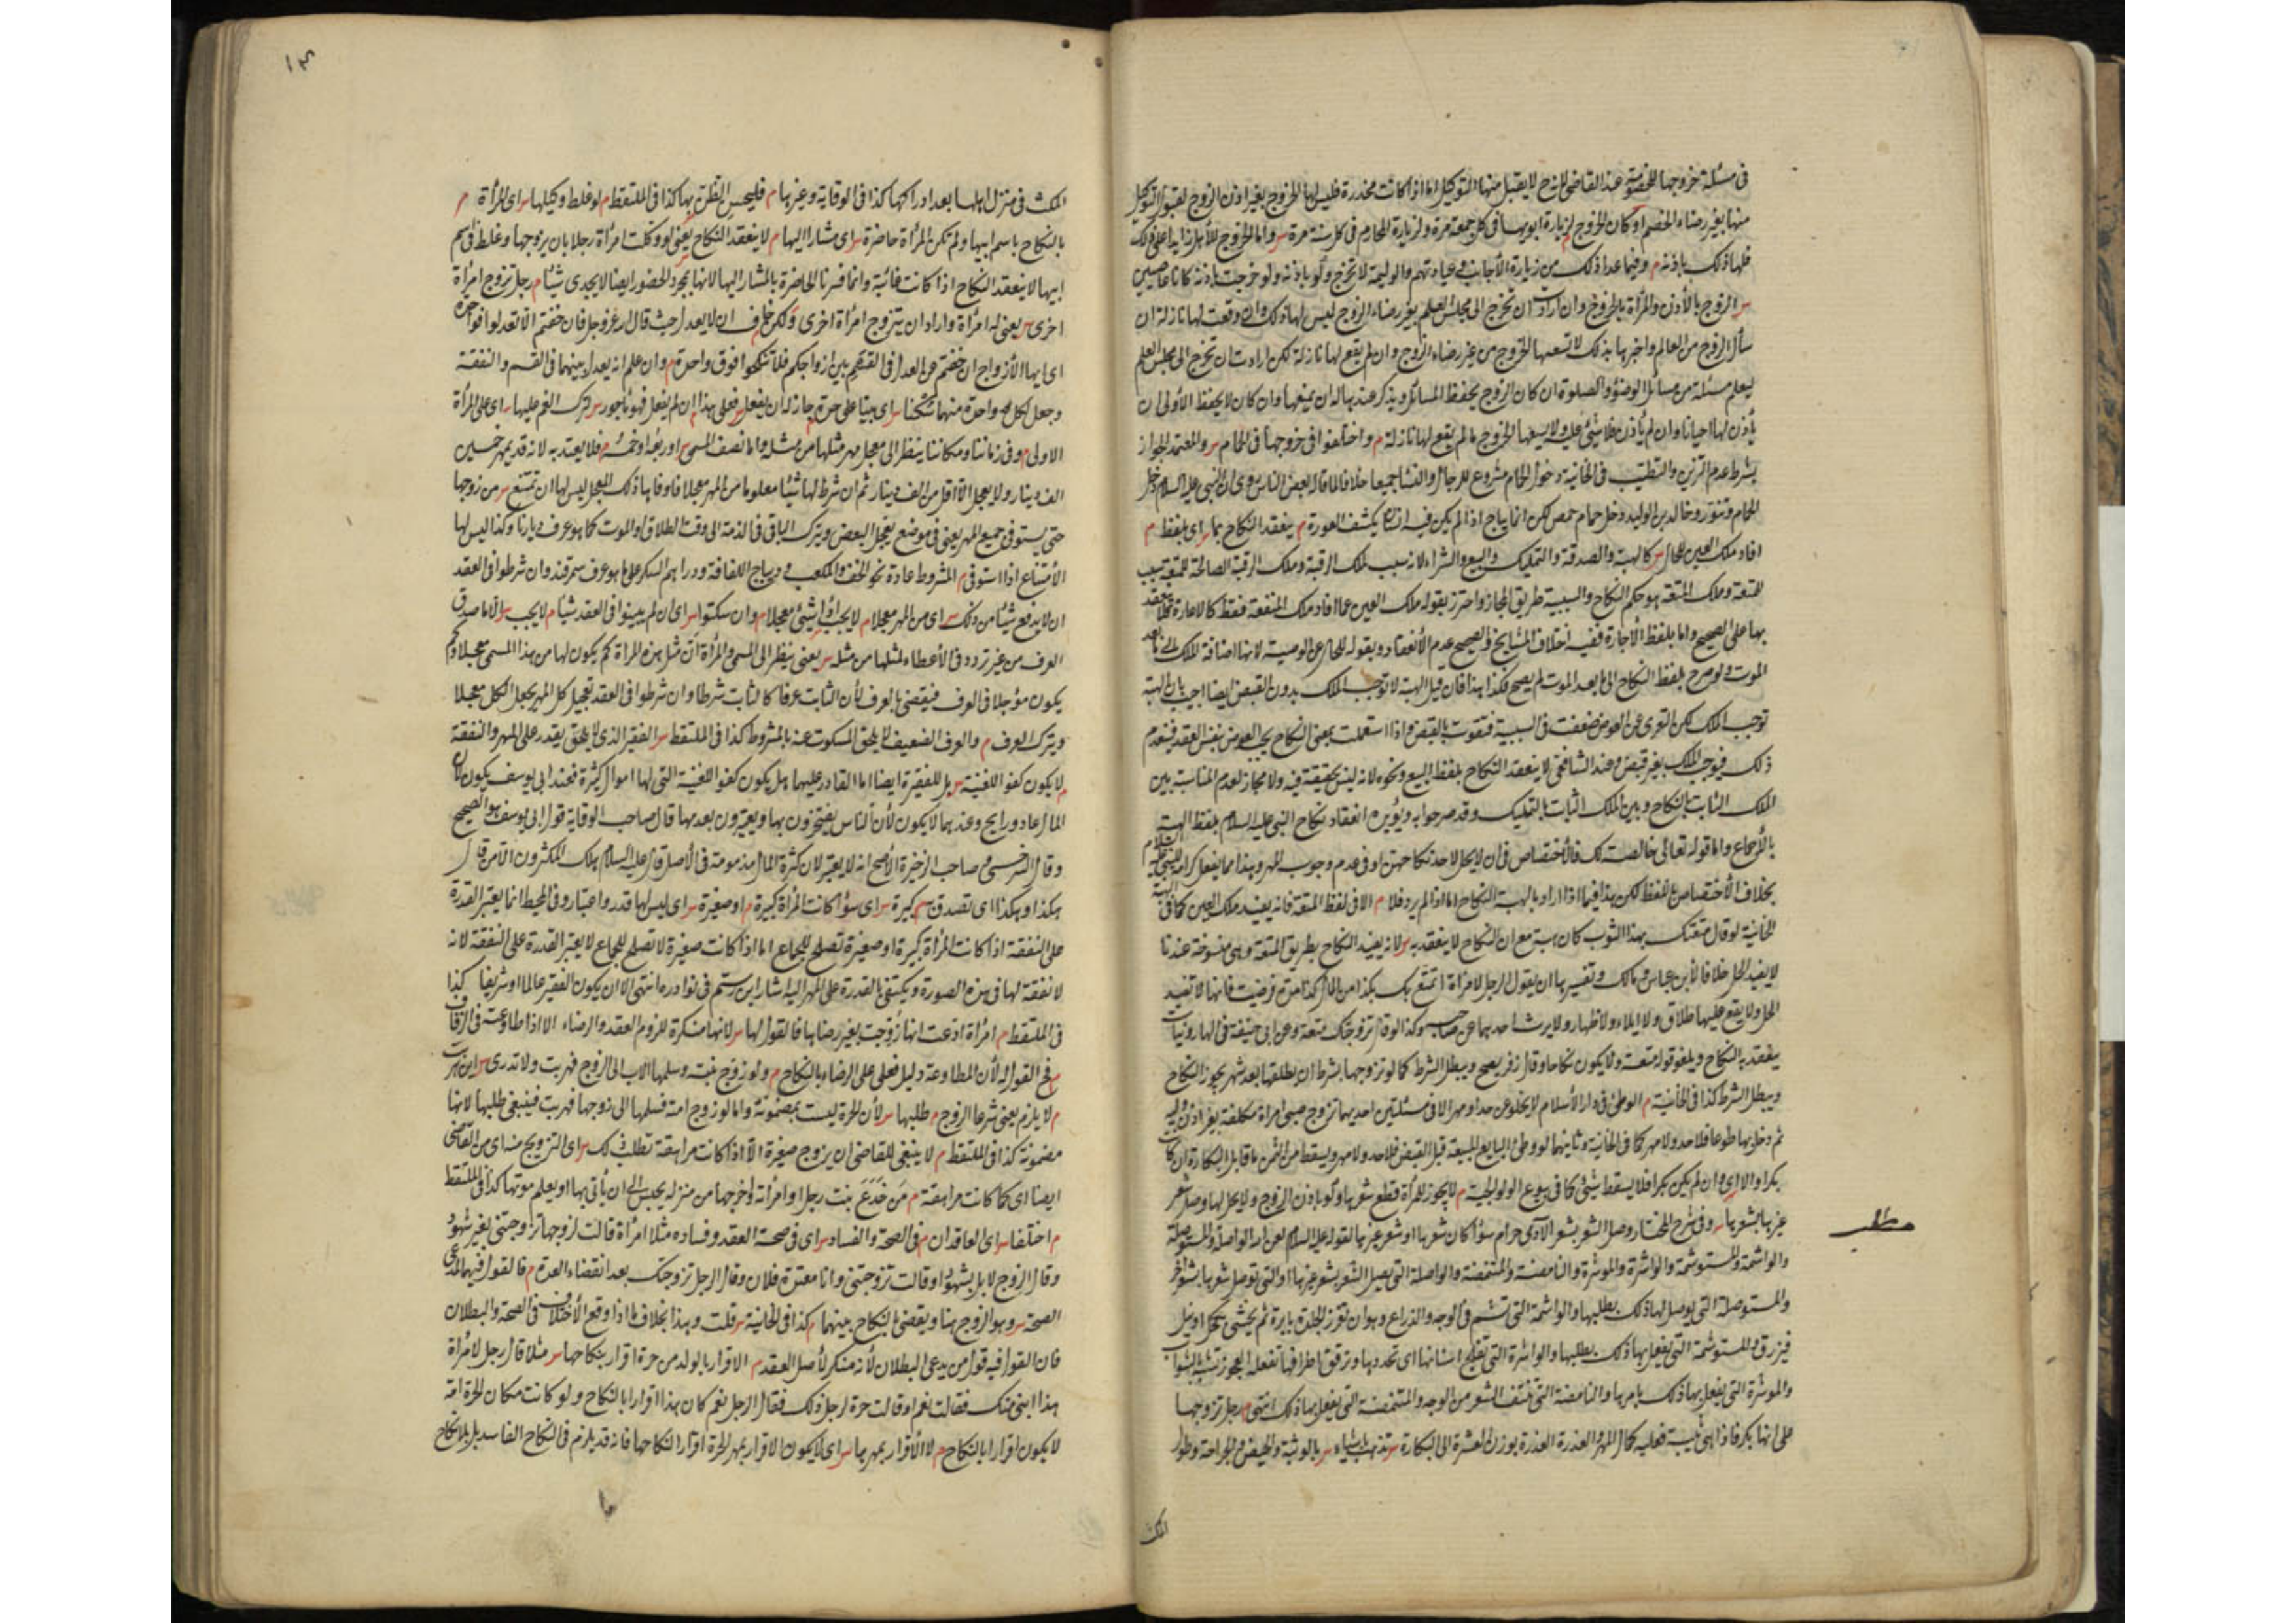 في مسئلة خروجها للخصومة عند القاضي للزوج لا يقبل منها التوكيل اما اذا كانت مخدرة فليس لها الخروج بغير اذن الزوج لقبول التوكيل
منها بغير رضاء الخصم او كان الخروج لزيارة ابويها في كل جمعة مرة ولزيارة المحارم في كل سنة مرة س واما الخروج للأهل زايدا على ذلك
فلها ذلك باذنه م وفيما عدا ذلك من زيارة الأجانب وعيادتهم والوليمة لا تخرج ولو باذنه ولو خرجت باذنه كانا عاصيين
س الزوج بالأذن والمرأة بالخروج وان ارادت ان تخرج الى مجلس العلم بغير رضاء الزوج ليس لها ذلك وان وقعت لها نازلة ان
سأل الزوج من العالم واخبرها بذلك لا تسعها الخروج من غير رضاء الزوج وان لم يقع لها نازلة لكن ارادت ان تخرج الى مجلس العلم
ليعلم مسئلة من مسائل الوضوء والصلوة ان كان الزوج يحفظ المسائل ويذكر عندها له ان يمنعها وان كان لا يحفظ الأولى ان
يأذن لها احيانا وان لم يأذن فلا شيئ عليه ولا يسعها الخروج ما لم يقع لها نازلة م واختلفوا في خروجها في الحمام س والمعتمد الجواز
بشرط عدم التزين والتطيب في الخانية دخول الحمام مشروع للرجال والنساء جميعا خلافا لما قاله بعض الناس روي ان النبي عليه السلام دخل
الحمام وتنور وخالد بن الوليد دخل حمام حمص لكن انما يباح اذا لم يكن فيه انسان يكشف العورة م ينعقد النكاح بما س اي بلفظ م
افاد ملك العين للحال س كالهبة والصدقة والتمليك والبيع والشراء لانه سبب لملك الرقبة وملك الرقبة الصالحة للمتعة سبب
للمتعة وملك المتعة هو حكم النكاح والسببية طريق المجاز واحترز بقوله ملك العين عما افاد ملك المنفعة فقط كالاعارة فلا ينعقد
بها على الصحيح واما بلفظ الأجارة ففيه اختلاف المشايخ والصحيح عدم الأنعقاد وبقوله للحال عن الوصية لانها اضافة للملك الى ما بعد
الموت ولو صرح بلفظ النكاح الى ما بعد الموت لم يصح فكذا هذا فان قيل الهبة لا توجب الملك بدون القبض ايضا اجيب بان الهبة
توجب الملك لكن التعري عن العوض ضعفت في السببية فتقوت بالقبض واذا استعملت بمعنى النكاح يجب العوض بنفس العقد فينعدم
ذلك فيوجب الملك بغير قبض وعند الشافعي لا ينعقد النكاح بلفظ البيع ونحوه لانه ليس بحقيقة فيه ولا مجاز لعدم المناسبة بين
الملك الثابت بالنكاح وبين الملك الثابت بالتمليك وقد مر جوابه ويؤيده انعقاد نكاح النبي عليه السلام بلفظ الهبة
بالأجماع واما قوله تعالى خالصة لك فالأختصاص في ان لا يحل لاحد نكاحهن او في عدم وجوب المهر وهذا مما يفعل كرامة للنبي عليه السلام
بخلاف الأختصاص باللفظ لكن هذا فيما اذا اراد بالهبة النكاح اما اذا لم يرد فلا م الا في لفظ المتعة فانه يفيد ملك العين كما في الهبة
الخانية لو قال متعتك بهذا الثوب كان هبة مع ان النكاح لا ينعقد به س لانه يفيد النكاح بطريق المتعة وهي منسوخة عندنا
لا يفيد الحل خلافا لأبن عباس ومالك وتفسيرها ان يقول الرجل لامرأة اتمتع بك بكذا من المال كذا مدة فرضيت فانها لا تفيد
الحل ولا يقع عليها طلاق ولا ايلاء ولا ظهار ولا يرث احدهما من صاحبه وكذا لو قال تزوجتك متعة وعن ابي حنيفة في الهارونيات
ينعقد به النكاح ويلغو قوله متعة ولا يكون نكاحا وقال زفر يصح ويبطل الشرط كما لو تزوجها بشرط ان يطلقها بعد شهر يجوز النكاح
ويبطل الشرط كذا في الخانية م الوطئ في دار الأسلام لا يخلو عن حد او مهر الا في مسئلتين احديهما تزوج صبي امراة مكلفة بغير اذن وليه
ثم دخل بها طوعا فلا حد ولا مهر كما في الخانية وثانيهما لو وطئ البايع المبيعة قبل القبض فلا حد ولا مهر ويسقط من الثمن ما قابل البكارة ان كان
بكرا والا اي وان لم يكن بكرا فلا يسقط شيئ كما في بيوع الولوالجية م لا يجوز للمرأة قطع شعرها ولو باذن الزوج ولا يحل لها وصل شعر
غيرها بشعرها س وفي شرح المختار وصل الشعر بشعر الآدمي حرام سواء كان شعرها او شعر غيرها لقوله عليه السلام لعن الله الواصلة والمستوصلة
والواشمة والمستوشمة والواشرة والموشرة والنامصة والمتنمصة والواصلة التي يصل الشعر بشعر غيرها او التي توصل شعرها بشعر آخر
والمستوصلة التي يوصل لها ذلك بطلبها والواشمة التي تشم في الوجه والذراع وهو ان تغرز الجلد بابرة ثم يحشى بكحل او نيل
فيزرق والمستوشمة التي يفعل بها ذلك بطلبها والواشرة التي تفلج اسنانها اي تحددها وترقق اطرافها تفعله العجوز تتشبه بالشواب
والموشرة التي يفعل بها ذلك بامرها والنامصة التي تنتف الشعر من الوجه والمتنمصة التي يفعل بها ذلك انتهى م رجل تزوجها
على انها بكر فاذا هي ثيبة فعليه كمال المهر والعذرة العذرة بوزن العشرة الى البكارة س تذهب باشياء س بالوثبة والحيض والجراحة وطول
المكث
مطلب
١٣
المكث في منزل اهلها بعد ادراكها كذا في الوقاية وغيرها م فليحسن الظن بها كذا في الملتقط م لو غلط وكيلها س اي المرأة م
بالنكاح باسم ابيها ولم تكن المرأة حاضرة س اي مشارا اليها م لا ينعقد النكاح يعني لو وكلت امرأة رجلا بان يزوجها وغلط في اسم
ابيها لا ينعقد النكاح اذا كانت غائبة وانما فسرنا الحاضرة بالمشار اليها لانها بمجرد الحضور ايضا لا يجدي شيئا م رجل تزوج امرأة
اخرى س يعني له امرأة واراد ان يتزوج امرأة اخرى ولكن خاف ان لا يعدل حيث قال الله عز وجل فان خفتم الا تعدلوا فواحدة
اي ايها الأزواج ان خفتم من العدل في القسم بين ازواجكم فلا تنكحوا فوق واحدة م وان علم انه يعدل بينهما في القسم والنفقة
وجعل لكل واحدة منهما سكنا س اي بيتا على حدة جاز له ان يفعل س فعلى هذا م ان لم يفعل فهو مأجور س لترك الغم عليها س اي على المرأة
الاولى م وفي زماننا ومكاننا ينظر الى معجل مهر مثلها من مثله واما نصف المسمى س او ربعه او خمسه م فلا يعتد به لانه قد يمهر خمسين
الف دينار ولا يعجل الا اقل من الف دينار ثم ان شرط لها شيئا معلوما من المهر معجلا فاوفاها ذلك المعجل ليس لها ان تمتنع س من زوجها
حتى يستوفي جميع المهر يعني في موضع يعجل البعض ويترك الباقي في الذمة الى وقت الطلاق او الموت كما هو عرف ديارنا وكذا ليس لها
الأمتناع اذا استوفى م المشروط عادة نحو الخف والمكعب وديباج اللفافة ودراهم السكر على ما هو عرف سمرقند وان شرطوا في العقد
ان لا يدفع شيئا من ذلك س اي من المهر معجلا م لا يجب اذا شيئ معجلا م وان سكتوا س اي ان لم يبينوا في العقد شيئا م لا يجب س الا ما صدق
العرف من غير تردد في الأعطاء لمثلها من مثله س يعني ينظر الى المسمى والمرأة ان مثل هذه المرأة كم يكون لها من هذا المسمى معجلا وكم
يكون مؤجلا في العرف فيقضى بالعرف لأن الثابت عرفا كالثابت شرطا وان شرطوا في العقد تعجيل كل المهر يجعل الكل معجلا
ويترك العرف م والعرف الضعيف لا يلحق المسكوت عنه بالمشروط كذا في الملتقط س الفقير الذي لا يحق يقدر على المهر والنفقة
م لا يكون كفوا للغنية س بل للفقيرة ايضا اما القادر عليهما هل يكون كفوا للغنية التي لها اموال كثيرة فعند ابي يوسف يكون لأن
المال غاد ورايح وعندهما لا يكون لأن الناس يفتخرون بها ويعيرون بعدمها قال صاحب الوقاية قول ابي يوسف هو الصحيح
وقال السرخسي صاحب الذخيرة الأصح انه لا يعتبر لان كثرة المال مذمومة في الأصل قال عليه السلام هلك المكثرون الا من قال
هكذا وهكذا اي تصدق س كبيرة س اي سواء كانت المرأة كبيرة م او صغيرة س اي ليس لها قدر واعتبار وفي المحيط انما يعتبر القدرة
على النفقة اذا كانت المرأة كبيرة او صغيرة تصلح للجماع اما اذا كانت صغيرة لا تصلح للجماع لا يعتبر القدرة على النفقة لانه
لا نفقة لها في هذه الصورة ويكتفي بالقدرة على المهر اليه اشار ابن رستم في نوادره انتهى الا ان يكون الفقير عالما او شريفا كذا
في الملتقط م امرأة ادعت انها زوجت بغير رضاها فالقول لها س لانها منكرة للزوم العقد والرضاء الا اذا طاوعت في الزفاف
س فح القول له لأن المطاوعة دليل فعلي على الرضاء بالنكاح م ولو زوج بنته وسلمها الاب الى الزوج فهربت ولا تدري س اين هربت
م لا يلزم يعني شرعا الزوج م طلبها س لأن الحرة ليست بمضمونة واما لو زوج امته فسلمها الى زوجها فهربت فينبغي طلبها لانها
مضمونة كذا في الملتقط م لا ينبغي للقاضي ان يزوج صغيرة الا اذا كانت مراهقة تطلب ذلك س اي التزويج منه اي من القاضي
ايضا اي كما كانت مراهقة م من خدع بنت رجل او امرأته واخرجها من منزله يحبس الى ان يأتي بها او يعلم موتها كذا في الملتقط
م اختلفا س اي العاقدان م في الصحة والفساد س اي في صحة العقد وفساده مثلا امرأة قالت لزوجها تزوجتني بغير شهود
وقال الزوج لا بل بشهود او قالت تزوجتني وانا معتدة فلان وقال الرجل تزوجتك بعد انقضاء العدة م فالقول فيهما لمدعي
الصحة س وهو الزوج هنا ويقضى بالنكاح بينهما م كذا في الخانية س قلت وهذا بخلاف ما اذا وقع الأختلاف في الصحة والبطلان
فان القول فيه قول من يدعي البطلان لأنه منكر لأصل العقد م الاقرار بالولد من حرة اقرار بنكاحها س مثلا قال رجل لامرأة
هذا ابني منك فقالت نعم او قالت حرة لرجل ذلك فقال الرجل نعم كان هذا اقرارا بالنكاح ولو كانت مكان الحرة امة
لا يكون اقرارا بالنكاح م لا الأقرار بمهرها س اي لا يكون الاقرار بمهر الحرة اقرارا لنكاحها فانه قد يلزم في النكاح الفاسد بل بلا نكاح